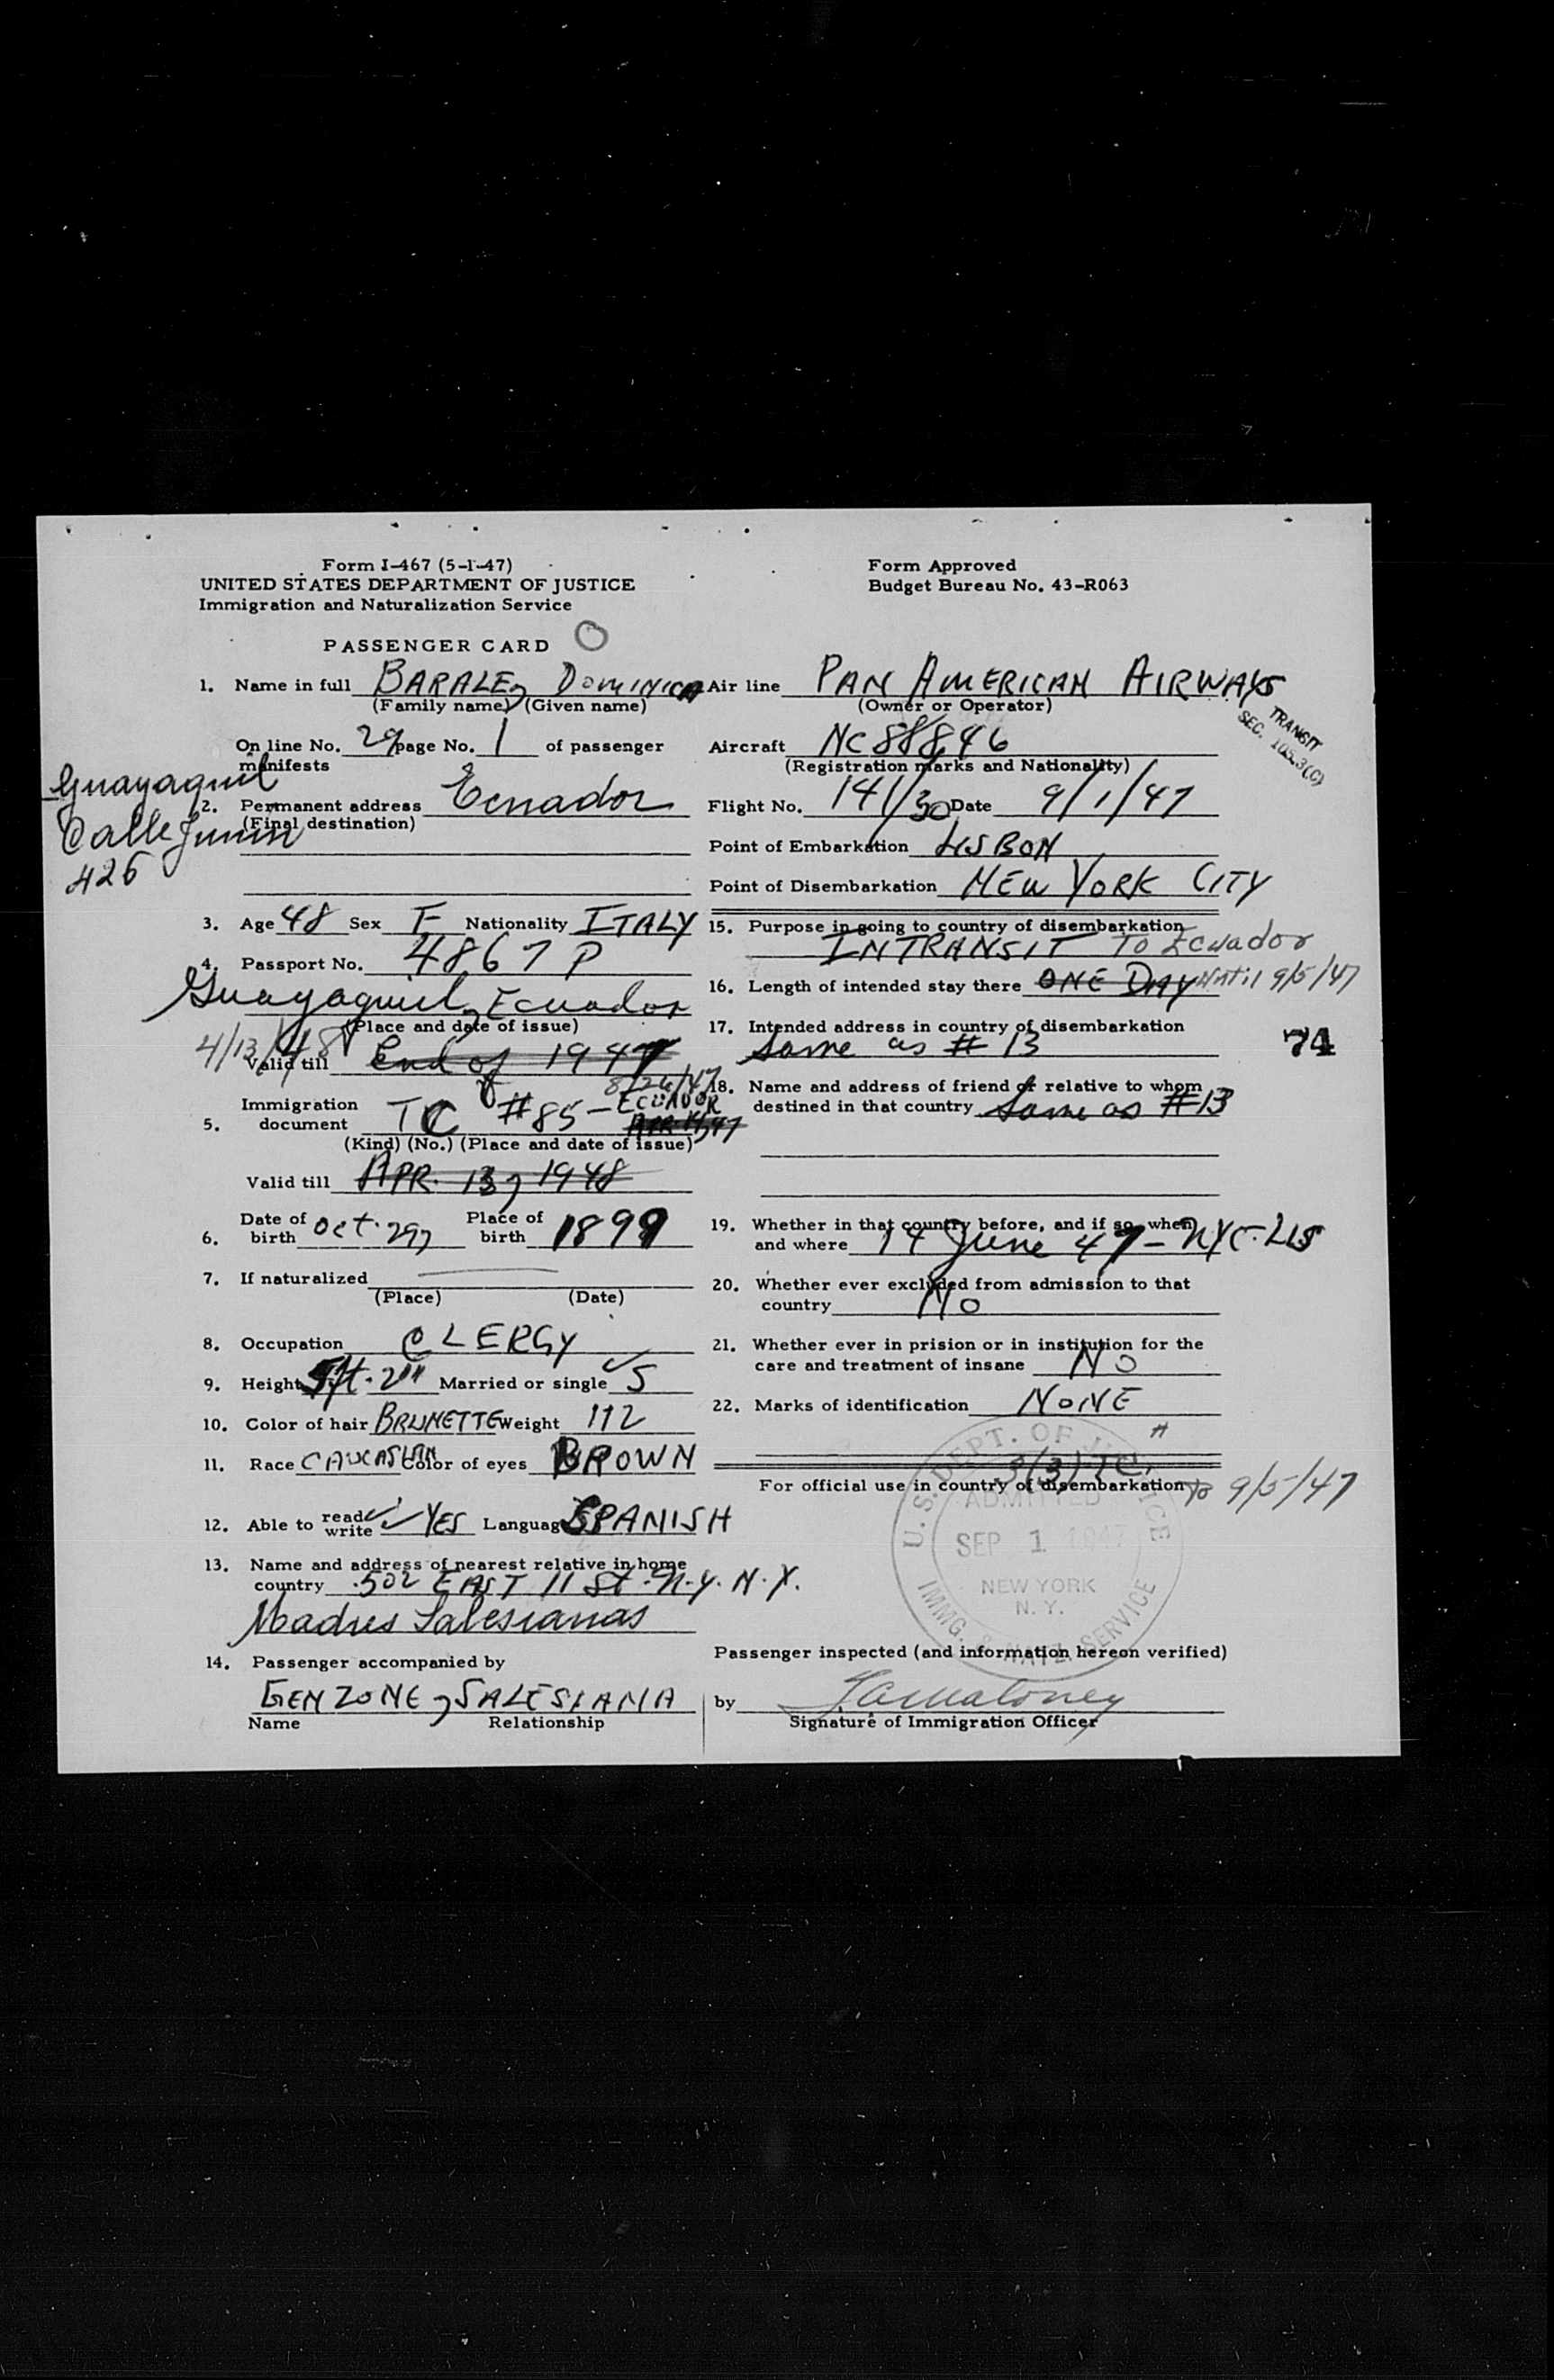 Form I-467 (5-1-47)
UNITED STATES DEPARTMENT OF JUSTICE
Immigration and Naturalization Service
Form Approved
Budget Bureau No. 43-R063
PASSENGER CARD
1. Name in full BARALE, DOMINICA
(Family name) (Given name)
On line No. 29 page No. 1 of passenger
manifests
Guayaquil
Calle Junin
426
2. Permanent address Ecuador
(Final destination)
3. Age 48 Sex F Nationality ITALY
4. Passport No. 4867 P
Guayaquil, Ecuador
(Place and date of issue)
4/13/48
Valid till End of 1947
8/26/47
5. Immigration document TC #85 - ECUADOR
(Kind) (No.) (Place and date of issue)
Valid till APR. 13, 1948
6. Date of birth Oct. 29, Place of birth 1899
7. If naturalized
(Place) (Date)
8. Occupation CLERGY
9. Height 5ft. 2" Married or single S
10. Color of hair BRUNETTE Weight 112
11. Race CAUCASIAN Color of eyes BROWN
12. Able to read write YES Language SPANISH
13. Name and address of nearest relative in home
country 502 EAST 11 St. N.Y. N.Y.
Madres Salesianas
14. Passenger accompanied by
GENZONE, SALESIANA
Name Relationship
Air line PAN AMERICAN AIRWAYS
(Owner or Operator)
TRANSIT
SEC.
Aircraft NC 88846
(Registration marks and Nationality)
Flight No. 141/30 Date 9/1/47
Point of Embarkation LISBON
Point of Disembarkation NEW YORK CITY
15. Purpose in going to country of disembarkation
INTRANSIT To Ecuador
16. Length of intended stay there ONE DAY Until 9/5/47
17. Intended address in country of disembarkation
Same as # 13
74
18. Name and address of friend or relative to whom
destined in that country Same as #13
19. Whether in that country before, and if so, when
and where 14 June 47 - NYC-LIS
20. Whether ever excluded from admission to that
country No
21. Whether ever in prision or in institution for the
care and treatment of insane NO
22. Marks of identification NONE
3(3)
For official use in country of disembarkation to 9/5/47
U.S. DEPT. OF JUSTICE
ADMITTED
SEP 1 1947
NEW YORK
N. Y.
IMMG. & NATZ. SERVICE
Passenger inspected (and information hereon verified)
by
Signature of Immigration Officer